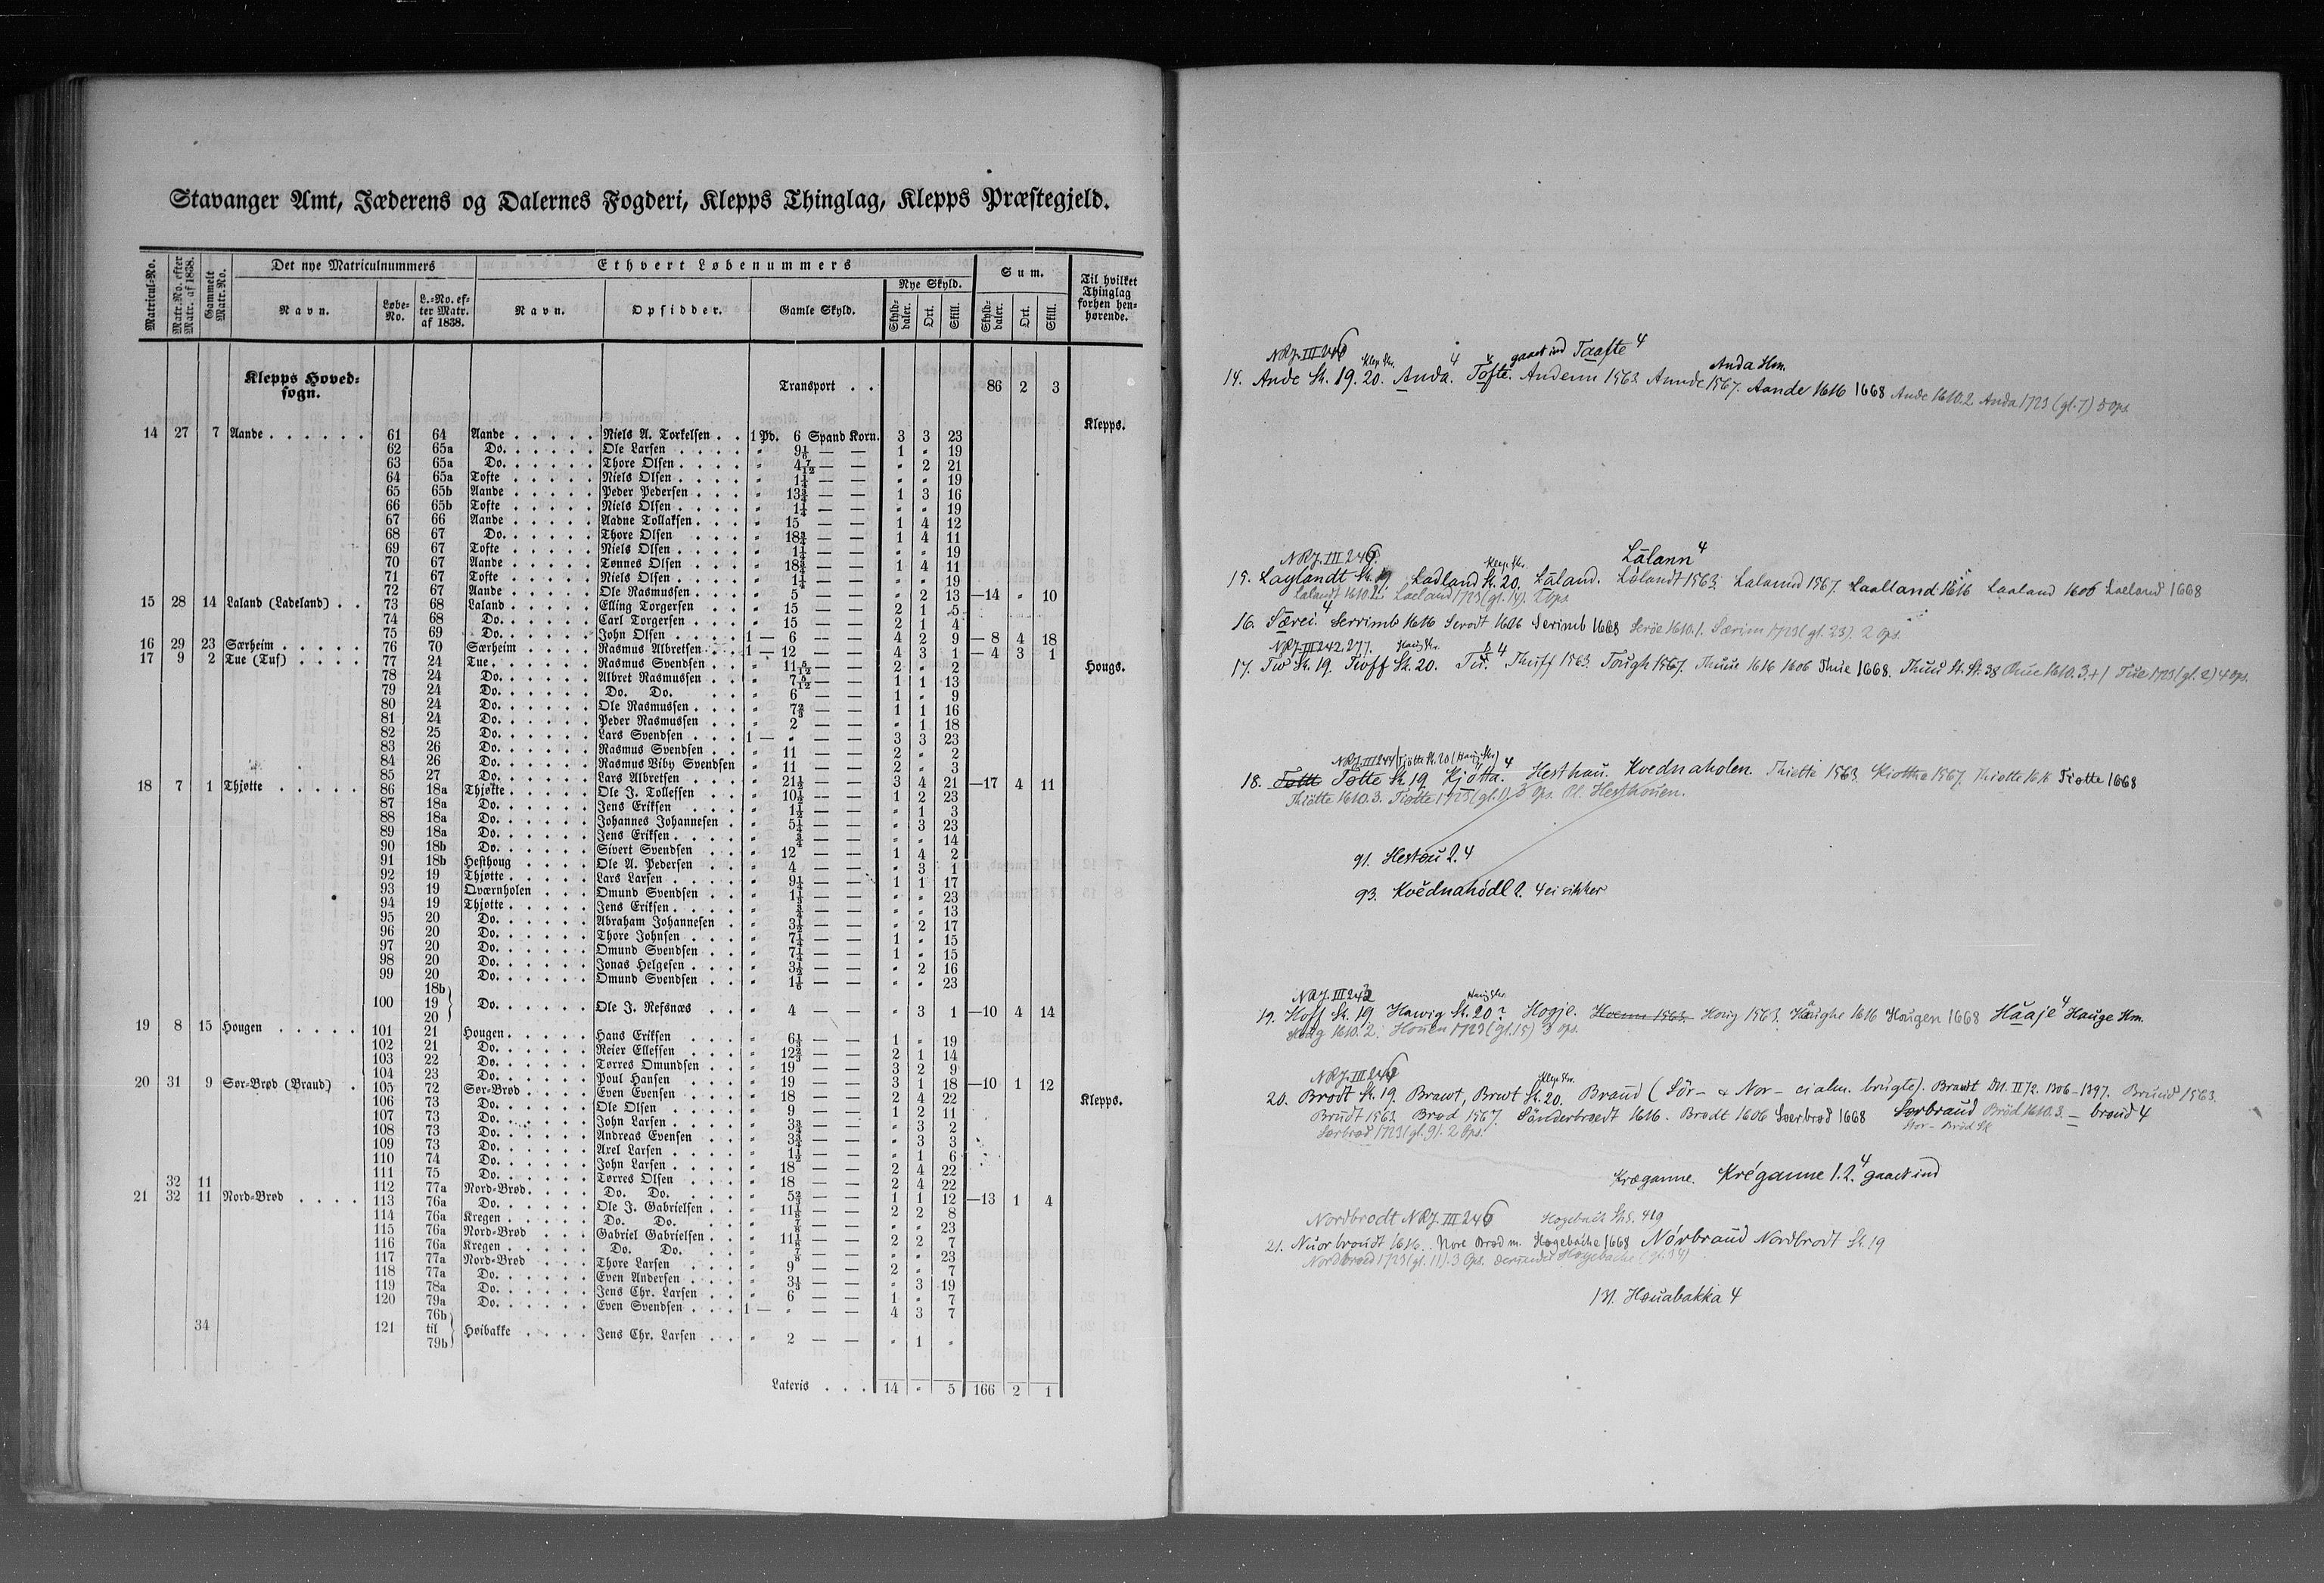 Stavanger Amt, Jæderens og Dalernes Fogderi, Klepps Thinglag, Klepps Præstegjeld.
Matricul-No. | Matr.-No. efter Matr. af 1838. | Gammelt Matr.-No. | Det nye Matriculnummers | Ethvert Løbenummers | Sum. | Til hvilket Thinglag forhen henhørende.
Navn. | Løbe-No. | L.-No. efter Matr. af 1838. | Navn. | Opsidder. | Gamle Skyld. | Nye Skyld. | Skylddaler. | Ort. | Skill. | Skylddaler. | Ort. | Skill.
Klepps Hovedsogn. Transport . . 86 2 3
Klepps.
14 27 7 Aande . . . . . . 61 64 Aande . . . . . Niels A. Torkelsen . . 1 Pd. 6 Spand Korn. 3 3 23
62 65a Do. . . . . . Ole Larsen . . . . " 9 1/6 — — 1 " 19
63 65a Do. . . . . . Thore Olsen . . . . " 4 7/12 — — " 2 21
64 65a Tofte . . . . . Niels Olsen . . . . " 1 1/4 — — " " 19
65 65b Aande . . . . . Peder Pedersen . . . " 13 3/4 — — 1 3 16
66 65b Tofte . . . . . Niels Olsen . . . . " 1 1/4 — — " " 19
67 66 Aande . . . . . Aadne Tollaksen . . . " 15 — — 1 4 12
68 67 Do. . . . . . Thore Olsen . . . " 18 3/4 — — 1 4 11
69 67 Tofte . . . . . Niels Olsen . . . . " 1 1/4 — — " " 19
70 67 Aande . . . . . Tønnes Olsen . . . " 18 3/4 — — 1 4 11
71 67 Tofte . . . . . Niels Olsen . . . . " 1 1/4 — — " " 19
72 67 Aande . . . . . Ole Rasmussen . . . " 5 — — " 2 13 —14 " 10
15 28 14 Laland (Ladeland) . . 73 68 Laland . . . . . Elling Torgersen . . . " 15 — — 2 1 5
74 68 Do. . . . . . Carl Torgersen . . . " 15 — — 2 1 4
75 69 Do. . . . . . John Olsen . . . . 1 — 6 — — 4 2 9 — 8 4 18
16 29 23 Særheim . . . . . 76 70 Særheim . . . . Rasmus Albretsen . . 1 — 12 — — 4 3 1 — 4 3 1
17 9 2 Tue (Tuf) . . . . 77 24 Tue . . . . . . Rasmus Svendsen . . " 11 5/12 — — 2 " 2 Hougs.
78 24 Do. . . . . . Albret Rasmussen . . " 7 5/12 — — 1 1 13
79 24 Do. . . . . . Do. Do. . . " 6 — — 1 " 9
80 24 Do. . . . . . Ole Rasmussen . . . " 7 2/3 — — 1 1 16
81 24 Do. . . . . . Peder Rasmussen . . " 2 — — " 1 18
82 25 Do. . . . . . Lars Svendsen . . . 1 — " — — 3 3 23
83 26 Do. . . . . . Rasmus Svendsen . . " 11 — — 2 " 2
84 26 Do. . . . . . Rasmus Viby Svendsen " 11 — — 2 " 3
85 27 Do. . . . . . Lars Albretsen . . . " 21 1/2 — — 3 4 21 —17 4 11
18 7 1 Thjøtte . . . . . 86 18a Thjøtte . . . . . Ole J. Tollefsen . . " 10 1/2 — — 1 2 23
87 18a Do. . . . . . Jens Eriksen . . . " 1 1/2 — — " 1 3
88 18a Do. . . . . . Johannes Johannesen . " 5 1/4 — — " 3 23
89 18a Do. . . . . . Jens Eriksen . . . . " 3/4 — — " " 14
90 18b Do. . . . . . Sivert Svendsen . . " 12 — — 1 4 2
91 18b Hesthoug . . . . Ole A. Pedersen . . " 4 — — " 3 1
92 19 Thjøtte . . . . . Lars Larsen . . . . " 9 1/4 — — 1 1 17
93 19 Qværnholen . . . Omund Svendsen . . " 1 1/3 — — " " 23
94 19 Thjøtte . . . . . Jens Eriksen . . . . " 3/4 — — " " 13
95 20 Do. . . . . . Abraham Johannesen . " 3 1/2 — — " 2 17
96 20 Do. . . . . . Thore Johnsen . . . " 7 1/4 — — 1 " 15
97 20 Do. . . . . . Omund Svendsen . . " 7 1/4 — — 1 " 15
98 20 Do. . . . . . Jonas Helgesen . . . " 3 1/2 — — " 2 16
99 20 Do. . . . . . Omund Svendsen . . " 1 1/6 — — " " 23
100 18b 19 20 } Do. . . . . . Ole J. Refsnæs . . " 4 — — " 3 1 —10 4 14
19 8 15 Hougen . . . . . 101 21 Hougen . . . . . Hans Eriksen . . . " 6 1/3 — — 1 " 19
102 21 Do. . . . . . Reier Ellefsen . . . " 12 2/3 — — 2 1 14
103 22 Do. . . . . . Torres Omundsen . . " 19 — — 3 2 9
104 23 Do. . . . . . Poul Hansen . . . " 19 — — 3 1 18 —10 1 12
20 31 9 Sør-Brød (Braud) . 105 72 Sør-Brød . . . . Even Evensen . . . " 18 — — 2 4 22 Klepps.
106 73 Do. . . . . . Ole Olsen . . . . " 9 — — 1 2 11
107 73 Do. . . . . . John Larsen . . . . " 3 3/4 — — " 3 2
108 73 Do. . . . . . Andreas Evensen . . " 3 3/4 — — " 3 3
109 73 Do. . . . . . Axel Larsen . . . . " 1 1/2 — — " 1 6
110 74 Do. . . . . . John Larsen . . . . " 18 — — 2 4 22
111 75 Do. . . . . . Torres Olsen . . . " 18 — — 2 4 22
32 11 112 77a Nord-Brød . . . . Do. Do. . . . " 5 2/3 — — 1 1 12 —13 1 4
21 32 11 Nord-Brød . . . . 113 76a Do. . . . . . Ole J. Gabrielsen . . " 11 1/8 — — 2 2 8
114 76a Kregen . . . . . Do. Do. . . " 7/8 — — " " 23
115 76a Nord-Brød . . . Gabriel Gabrielsen . . " 11 1/8 — — 2 2 7
116 76a Kregen . . . . . Do. Do. . . " 7/8 — — " " 23
117 77a Nord-Brød . . . Thore Larsen . . . " 9 — — 2 " 7
118 77a Do. . . . . . Even Andersen . . . " 3 1/3 — — " 3 19
119 78a Do. . . . . . Jens Chr. Larsen . . " 6 — — 1 " 7
120 79a Do. . . . . . Even Svendsen . . . 1 — " — — 4 3 7
34 121 76b til 79b } Høibakke . . . . Jens Chr. Larsen . . " 2 — — " 1 "
Lateris . . . 14 " 5 166 2 1
NRJ. III 246 Klep Skr. 4 gaaet ind Taafte 4 Anda Hm.
14. Ande St. 19. 20. Anda. Tofte. Andenn 1563. Annde 1567. Aande 1616 1668 Ande 1610.2 Anda 1723 (gl. 7) 5 Ops.
NRJ. III 246. Klep Skr. Lålann 4
15. Laglandt St. 19 Ladland St. 20. Låland. Lålandt 1563. Lalannd 1567. Laalland 1616 Laaland 1606 Laeland 1668
Lalandt 1610.2. Laeland 1723 (gl. 14). 2 Ops.
16. Særei. 4 Serrimb 1616 Serodt 1606 Serimb 1668 Seröe 1610.1. Særim 1723 (gl. 23). 2 Ops.
NRJ. III 242. 277. Haug Skr. 4
17. Tiw St. 19. Twoff St. 20. Tu. Thuff 1563. Tough 1567. Thuue 1616 1606 Thue 1668. Thuu St. St. 38 Thue 1610.3+1 Tue 1723 (gl. 2) 4 Ops.
NRJ. III 244 Tjötte St. 20 (Haug Skr) 4
18. Tøtte Tøtte St. 19 Kjøtta. Hesthau. Kvednaholen. Thiette 1563. Kiotthe 1567. Thiøtte 1616 Tiøtte 1668
Thiøtte 1610.3. Tiøtte 1723 (gl. 1) 5 Ops. Pl. Hesthouen.
91. Hestou 2. 4
93. Kvednahódl 2. 4 ei sikker
NRJ. III 242 Haug Skr.
19. Hoff St. 19 Hawig St. 20? Hogje. Hoenn 1563. Houg 1563. Haughe 1616 Haugen 1668 Haaje 4 Hauge Hm.
Houg 1610.2. Houen 1723 (gl. 15) 3 Ops.
NRJ. III 246 Klep Skr.
20. Brødt St. 19. Brawt, Brwt St. 20. Braud (Sør- & Nor- ei alm. brugte). Brautt DN. II 72. 1306-1397. Bruud 1563.
Brudt 1563. Brød 1567. Sönderbroedt 1616. Brødt 1606 Soerbrød 1668 Sørbraud Bröd 1610.3. — braud 4
Sørbrød 1723 (gl. 9). 2 Ops. Stor-Bröd
Kræganne. Kréganne 1. 2. 4 gaaet ind
Nordbrodt NRJ. III 246 Hogebach St. S. 419
21. Nuorbroudt 1616. Nore Brød m. Høgebache 1668 Nórbraud Nordbrodt St. 19
Nordbrøed 1723 (gl. 11). 3 Ops. derunder Høgebache (gl. 34)
131. Høuabakka 4